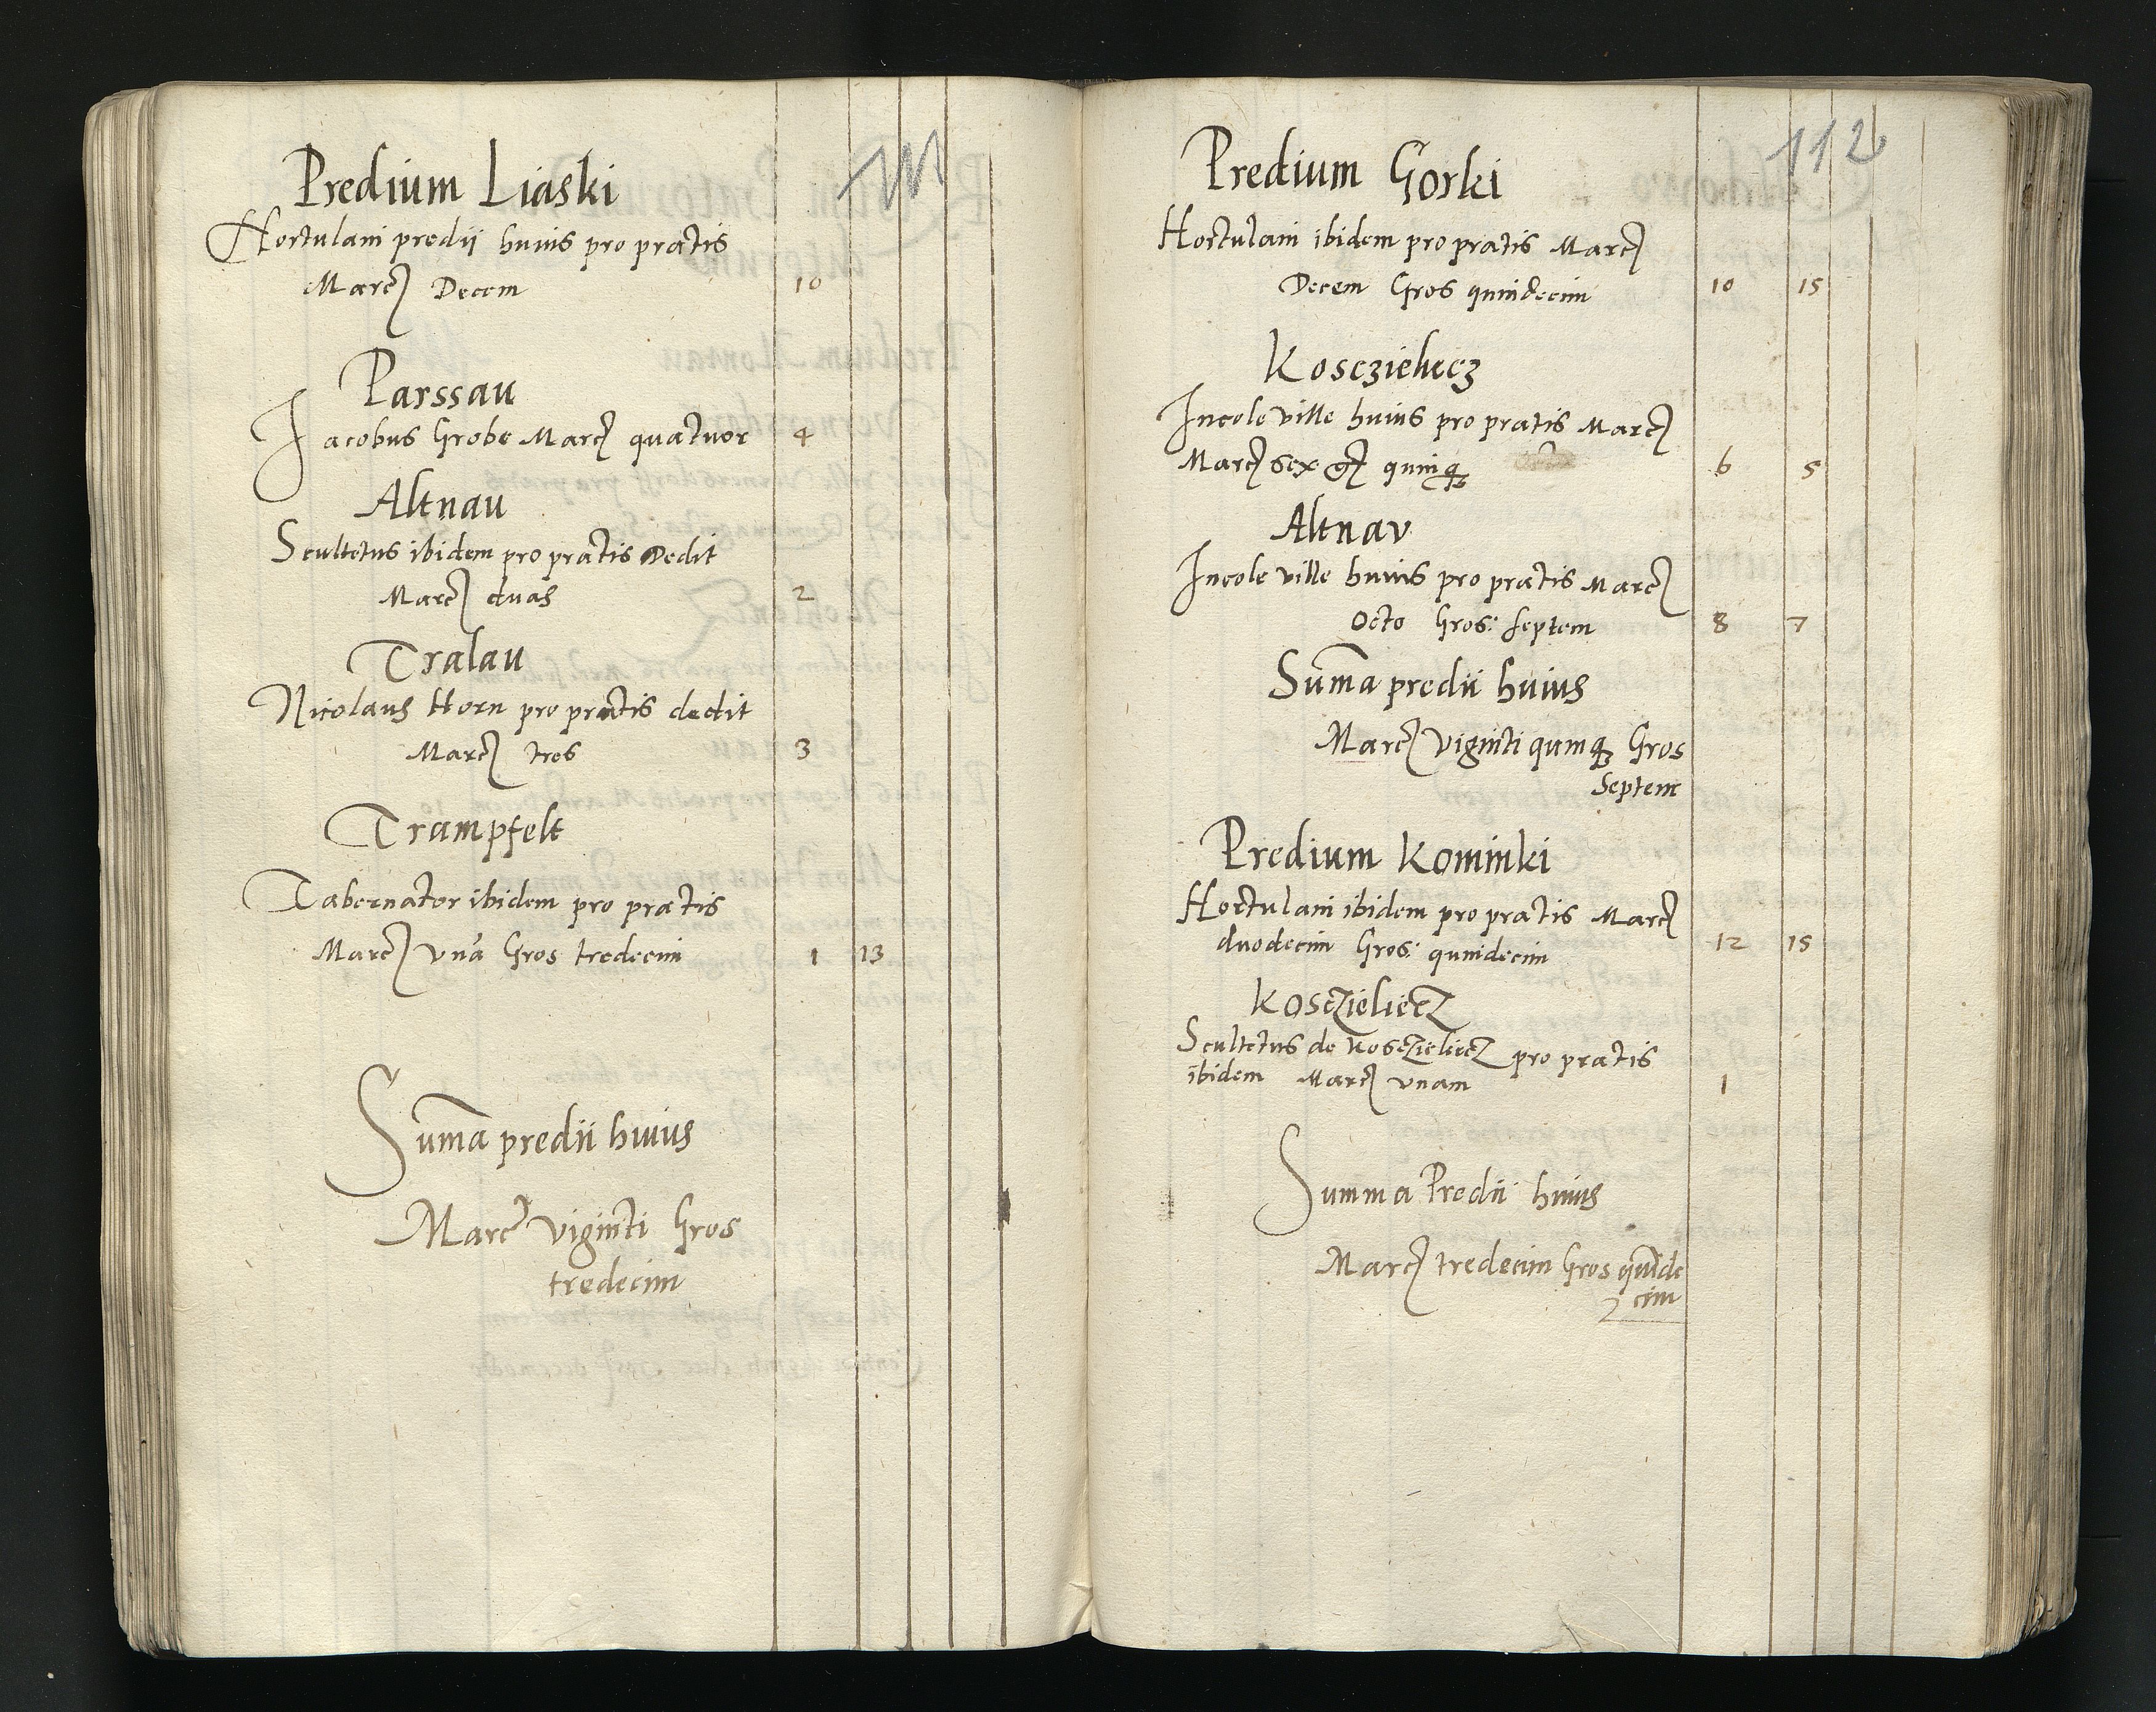 111
Predium Liaski
Hortulani predii huius pro pratis
Marc Decem 10
Parssau
Jacobus Grobe Marc quatuor 4
Altnau
Scultetus ibidem pro pratis Dedit
Marc duas 2
Tralau
Nicolaus Horn pro pratis dedit
Marc tres 3
Trampfelt
Tabernator ibidem pro pratis
Marc vnā Gros tredecim 1 13
Sum̄a predii huius
Marc viginti Gros
tredecim
112
Predium Gorki
Hortulani ibidem pro pratis Marc
Decem Gros quindecim 10 15
Kosczielicz
Incole ville huius pro pratis Marc
Marc sex gr quinq3 6 5
Altnav
Incole ville huius pro pratis Marc
octo Gros: septem 8 7
Sum̄a predii huius
Marc viginti quinq3 Gros
Septem
Predium Kominki
Hortulani ibidem pro pratis Marc
duodecim Gros: quindecim 12 15
Kosczieliecz
Scultetus de Kosczieliecz pro pratis
ibidem Marc vnam 1
Summa Predii huius
Marc tredecim Gros quinde
cim